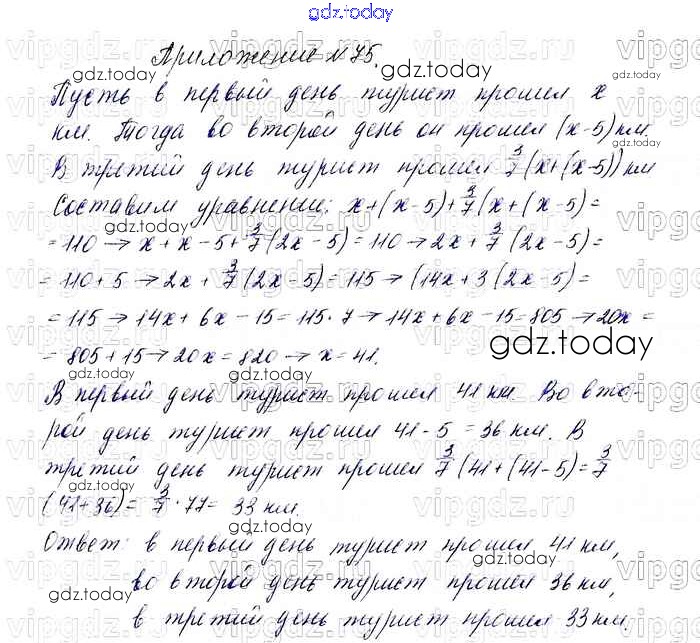 gdz.today
Приложение №75.
Пусть в первый день турист прошел x
км. Тогда во второй день он прошел (x-5) км.
В третий день турист прошел 3/7(x+(x-5)) км
Составим уравнение: x+(x-5)+3/7(x+(x-5)=
=110→x+x-5+3/7(2x-5)=110→2x+3/7(2x-5)=
=110+5→2x+3/7(2x-5)=115→(14x+3(2x-5)=
=115→14x+6x-15=115·7→14x+6x-15=805→20x=
=805+15→20x=820→x=41.
В первый день турист прошел 41 км. Во вто-
рой день турист прошел 41-5=36 км. В
третий день турист прошел 3/7(41+(41-5)=3/7
(41+36)=3/7·77=33 км.
Ответ: в первый день турист прошел 41 км,
во второй день турист прошел 36 км,
в третий день турист прошел 33 км.